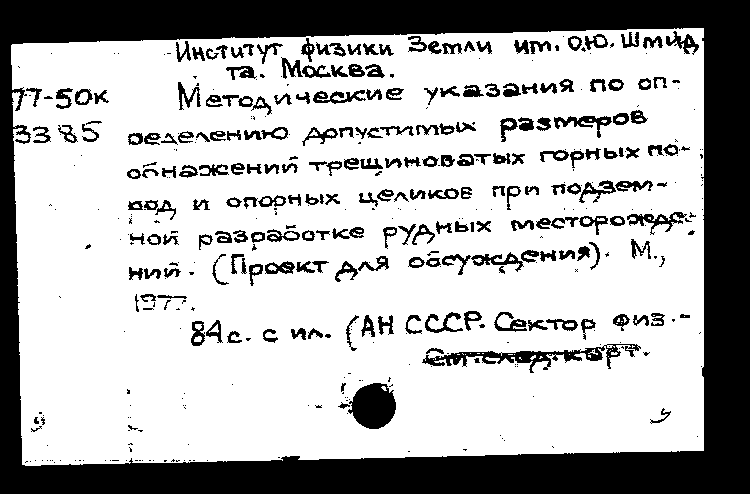 Институт физики Земли им. О.Ю. Шмид-
та. Москва.
77-50к Методические указания по оп-
3385 ределению допустимых размеров
обнажений трещиноватых горных по-
род и опорных целиков при подзем-
ной разработке рудных месторожде-
ний. (Проект для обсуждения). М.,
1977.
84с. с ил. (АН СССР. Сектор физ.-
См.след.карт.